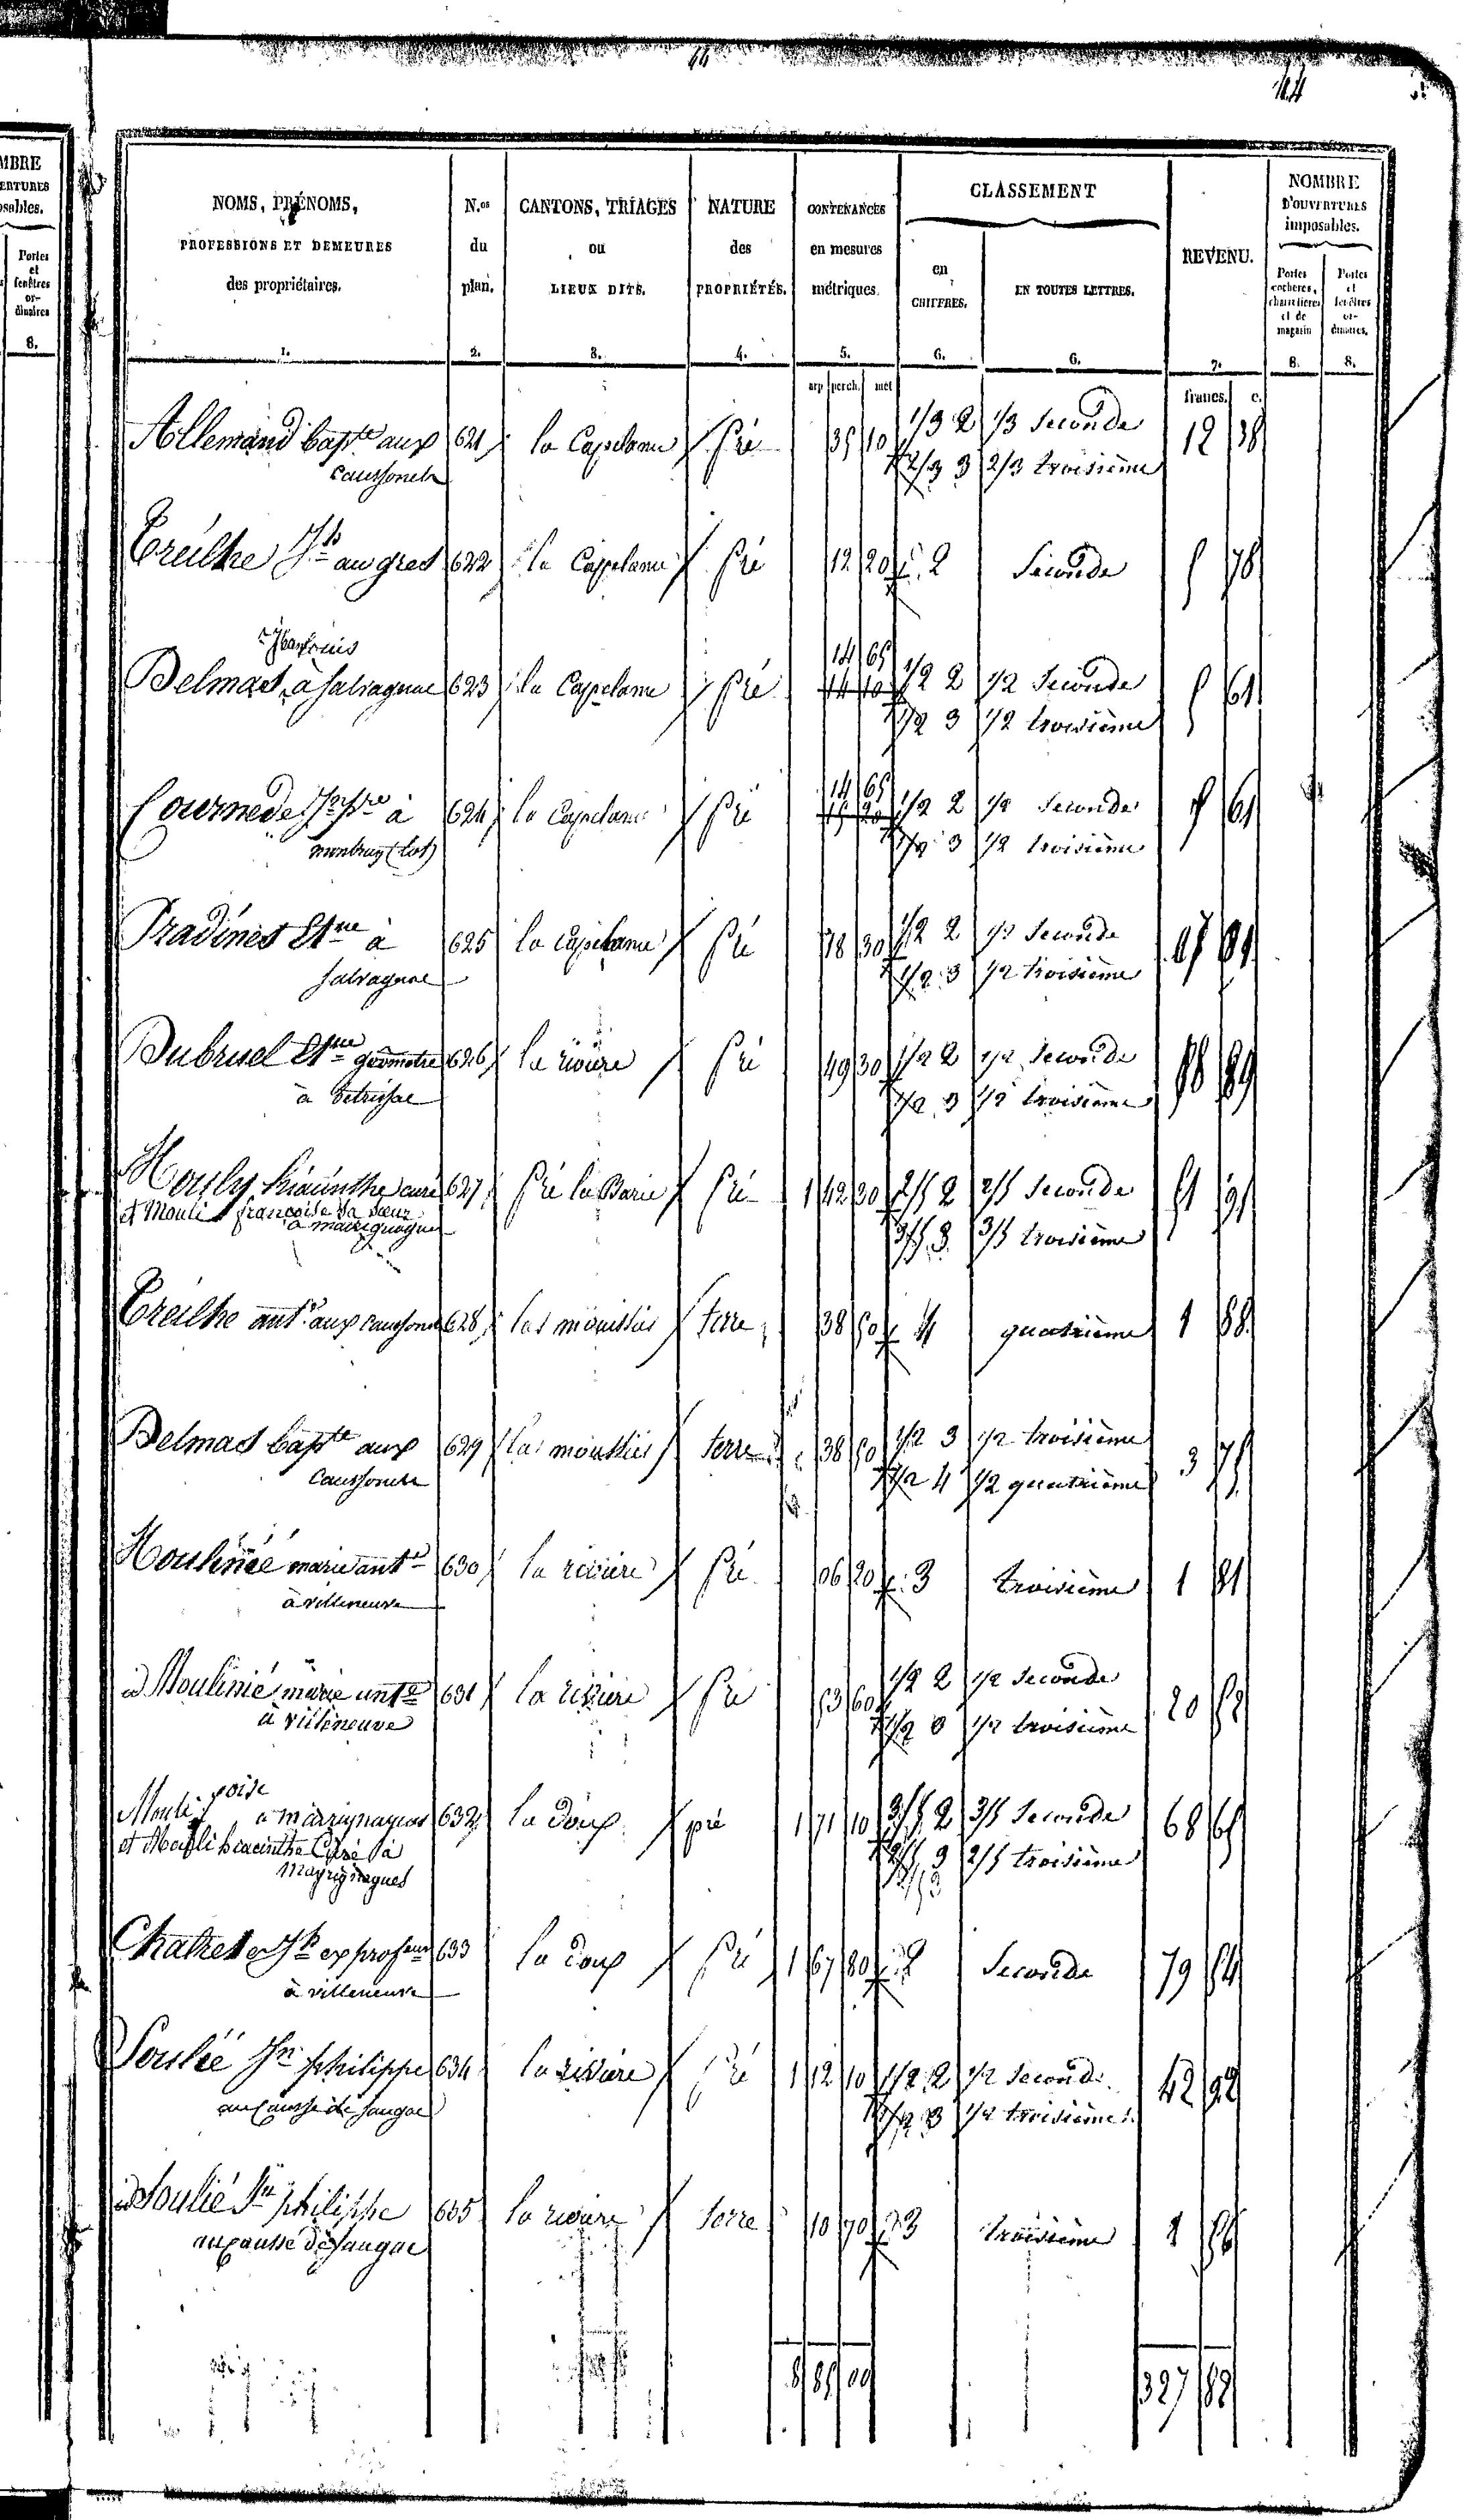 44
44
MBRE
ERTURES
osables.
Portes
et
fenêtres
or-
dinaires
8.
NOMS, PRÉNOMS, N.os CANTONS, TRIAGES NATURE CONTENANCES CLASSEMENT REVENU. NOMBRE
D'OUVERTURES
imposables.
PROFESSIONS ET DEMEURES du ou des en mesures
des propriétaires. plan. LIEUX DITS. PROPRIÉTÉS. métriques. en CHIFFRES. EN TOUTES LETTRES.
Portes cochères, charretières et de magasin
Portes et fenêtres or- dinaires.
1. 2. 3. 4. 5. 6. 6. 7. 8. 8.
arp perch. mèt francs. c.
Allemand bap.te aux 621 la Capelanie Pré 35 10 1/3 2 1/3 Seconde 12 38
caussonels 2/3 3 2/3 troisième
Treilhe Jh au gres 622 la Capelanie Pré 12 20 2 Seconde 5 78
Jean Louis
14 65
Delmas à Salvagnac 623 la Capelanie Pré 1/2 2 1/2 Seconde 5 61
1/2 3 1/2 troisième
14 65
Cournede Jn Pre à 624 la Capelanie Pré 1/2 2 1/2 Seconde 5 61
(lot) 1/2 3 1/2 troisième
Pradines Etne à 625 la Capelanie Pré 78 30 1/2 2 1/2 Seconde
Salvagnac 1/2 3 1/2 troisième
Dubruel Etne géomètre 626 la rivière Pré 49 30 1/2 2 1/2 Seconde 18 89
à 1/2 3 1/2 troisième
Mouly hiacinthe curé 627 Pré la Barie Pré 1 42 30 2/5 2 2/5 Seconde 51 91
et Mouli françoise sa sœur 3/5 3 3/5 troisième
Treilhe ant.e aux caussonels 628 las mouissies terre 38 50 4 quatrième 1 88
Delmas bapte aux 629 las mouissies terre 38 50 1/2 3 1/2 troisième 3 75
Caussonels 1/2 4 1/2 quatrième
Moulinié marie ant.e 630 la rivière Pré 06 20 3 troisième 1 81
à villeneuve
id Moulinié marie ante 631 la rivière Pré 53 60 1/2 2 1/2 Seconde 20 52
à villeneuve 1/2 3 1/2 troisième
Mouli foise à marignagues 632 la Doux pré 1 71 10 3/5 2 3/5 Seconde 68 65
et Mouli hiacinthe Curé à 2/5 3 2/5 troisième
Jh ex profeseur 633 la Doux Pré 1 67 80 2 Seconde 79 54
à villeneuve
Soulié Jn philippe 634 la rivière Pré 1 12 10 1/2 2 1/2 Seconde 42 92
au causse de Saugac 1/2 3 1/2 troisième
id Soulié Jn philippe 635 la rivière terre 10 70 3 troisième 1
au causse de Saugac
327 82